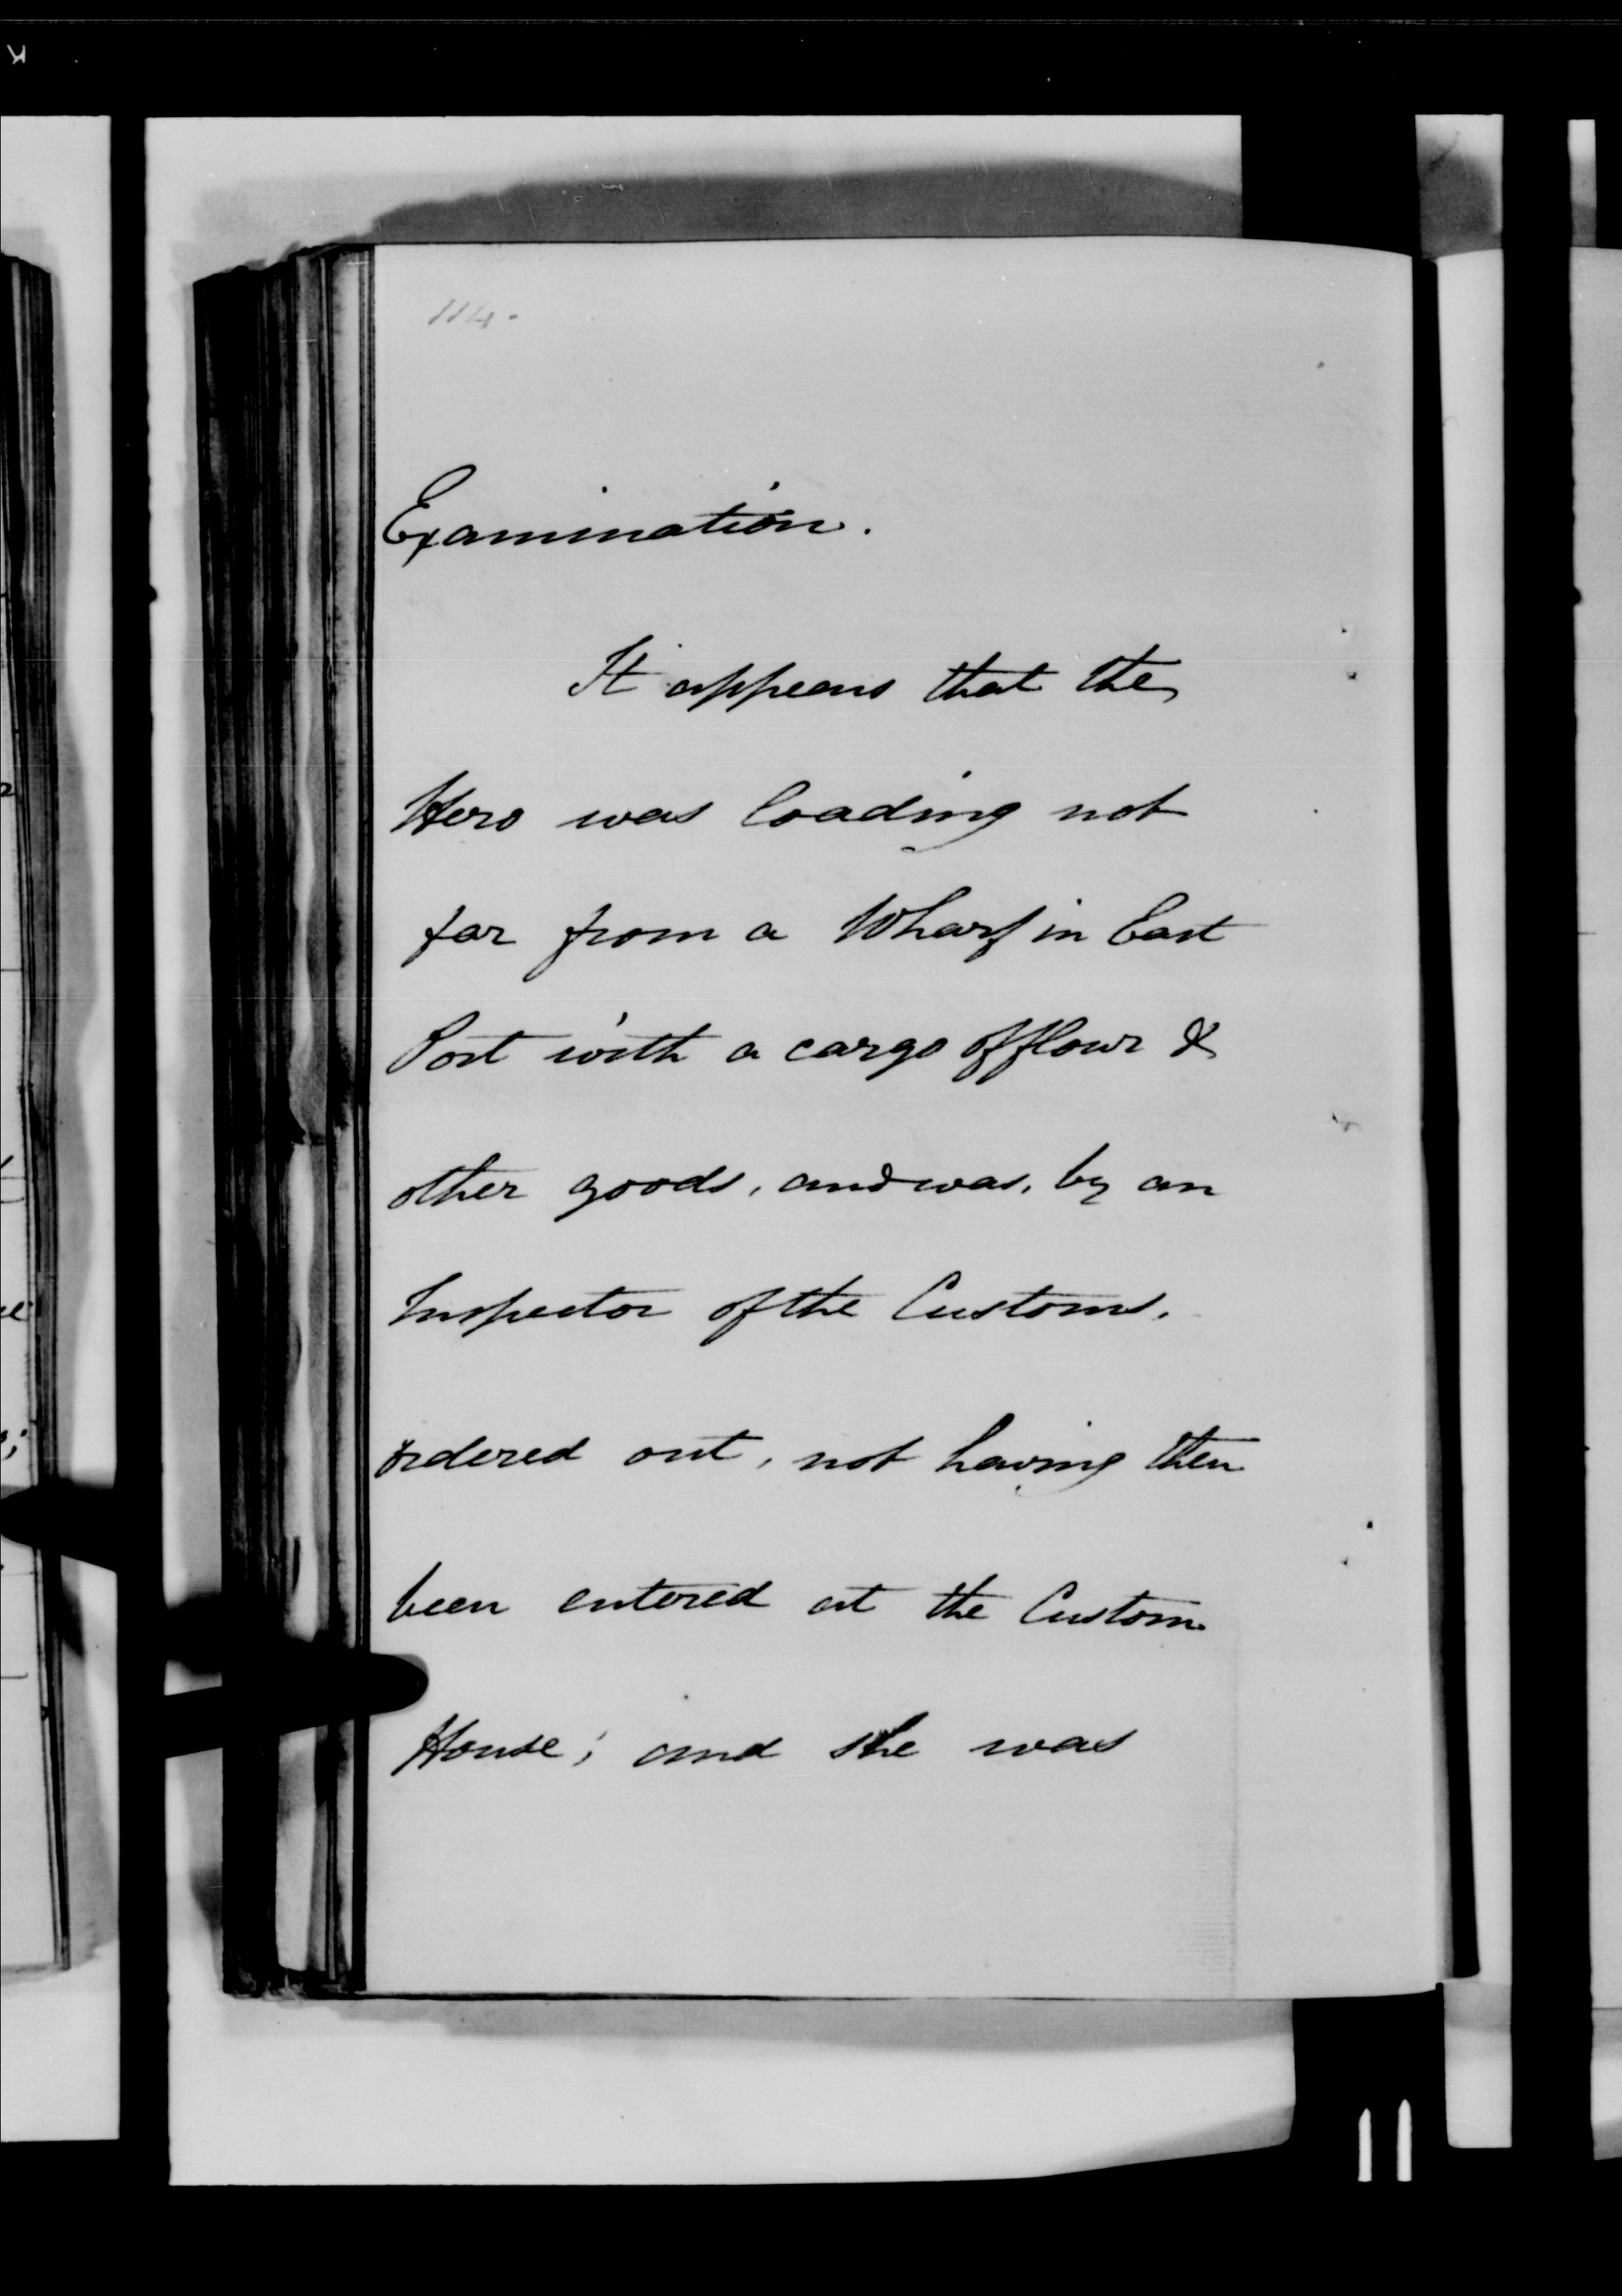 114.
Examination.
It appears that the
Hero was loading not
far from a Wharf in East
Port with a cargo of flour &
other goods, and was, by an
Inspector of the Customs,
ordered out, not having then
been entered at the Custom
House; and she was